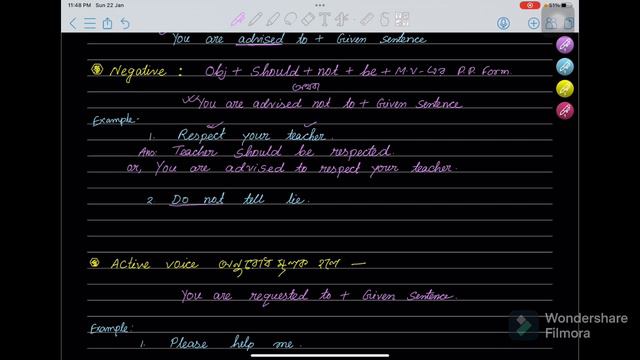 11:48 PM Sun 22 Jan
51%
You are advised to + Given sentence
Negative : Obj + should + not + be + M.V-এর P.P. Form
অথবা
You are advised not to + Given sentence
Example:
1. Respect your teacher.
Ans: Teacher should be respected.
or, You are advised to respect your teacher.
2 Do not tell lie.
Active voice অনুরোধ মূলক হলে —
You are requested to + Given sentence.
Example:
1. Please help me.
Wondershare
Filmora